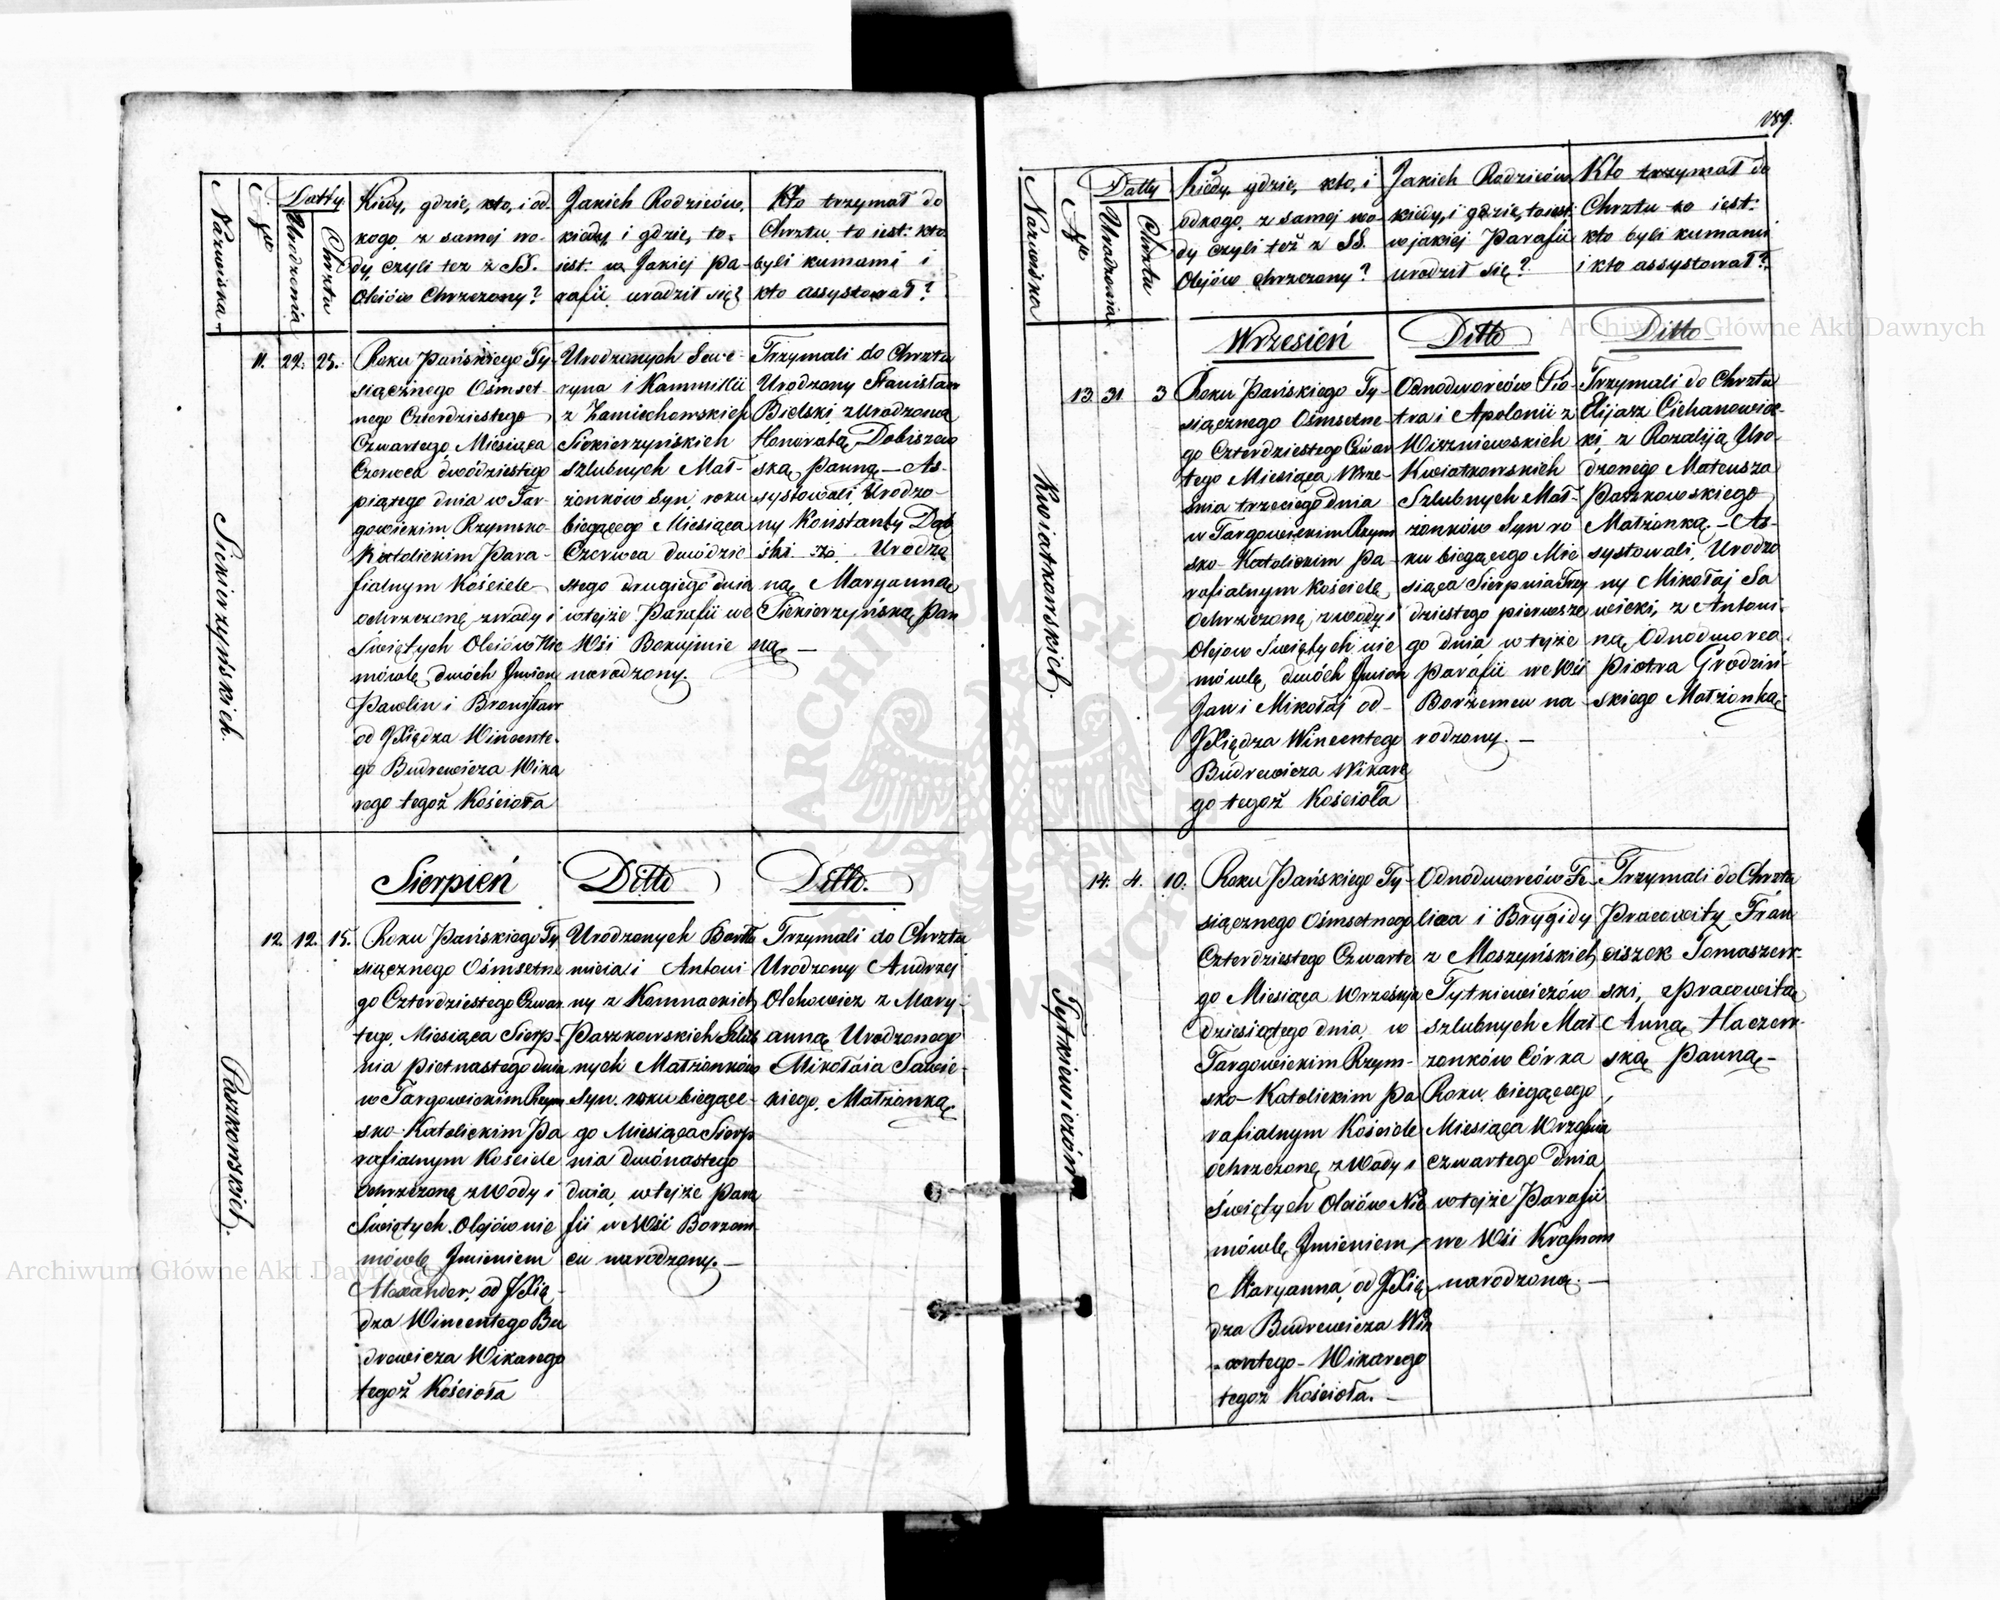 Nazwiska
Nro
Datty.
Urodzenia
Chrztu
Kiedy, gdzie, kto, i od-
kogo, z samej wo-
dy, czyli tez z SS.
Olejów Chrzczony?
Jakich Rodziców,
kiedy, i gdzie, to-
iest: w Jakiej Pa-
rafii urodził się?
Kto trzymał do
Chrztu to iest: kto
byli kumami i
kto assystował?
Siekierzyńskich.
11.
22.
25.
Roku Pańskiego Ty-
siącznego Ośmset-
nego Czterdziestego
Czwartego, Miesiąca
Czerwca dwódziestego
piątego dnia w Tar-
gowickim Rzymsko-
Katolickim Para-
fialnym Kościele
ochrzczone z wody i
Świętych Oleiów Nie
mówlę, dwóch Jmion
Pawlin i Bronisław
od JXiędza Wincente-
go Budrewicza Wika
rego tegoż Kościoła
Urodzonych Sewe-
ryna i Kammilli
z Zamiechowskich
Siekierzyńskich
szlubnych Mał-
żonków Syn, roku
biegącego Miesiąca
Czerwca dwódzie
stego drugiego dnia
wtejże Parafii we
Wsi Boкujmie
narodzony.
Trzymali do Chrztu
Urodzony Stanisław
Bielski z Urodzoną
Honoratą Dobiszew
ską, Panną — As-
systowali Urodzo-
ny Konstanty Dąb
ski za Urodzo
ną Maryanną
Siekierzyńską Pan
ną. —
Sierpień
Ditto
Ditto.
Paszkowskich.
12.
12.
15.
Roku Pańskiego Ty
siącznego Ośmsetne
go Czterdziestego Czwar
tego, Miesiąca Sierp-
nia pietnastego dnia
w Targowickim Rzym
sko-Katolickim Pa
rafialnym Kościele
ochrzczone z Wody i
Świętych Olejów nie
mówlę Jmieniem
Alexander, od JXię-
dza Wincentego Bu
drewicza Wikarego
tegoż Kościoła
Urodzonych Bartło
mieia i Antoni-
ny z Komnackich
Paszkowskich Szlub
nych Małżonków
Syn. roku biegące-
go Miesiąca Sierp
nia dwónastego
dnia, wtejże Para
fii w Wsi Borzem-
cu narodzony. —
Trzymali do Chrztu
Urodzony Andrzej
Olchowicz z Mary-
anną Urodzonego
Mikołaia Sawic-
kiego, Małżonką
189.
Nazwiska
Nro
Datty
Urodzenia
Chrztu
Kiedy, gdzie, kto, i
odkogo, z samej wo-
dy czyli też z SS.
Olejów chrzczony?
Jakich Rodziców,
kiedy, i gdzie, toiest:
w jakiej Parafii
urodził się?
Kto trzymał do
Chrztu to iest:
kto byli kumami
i kto assystował?
Wrzesień
Ditto
Ditto
Kwiatkowskich.
13
31
3
Roku Pańskiego Ty-
siącznego Ośmsetne-
go Czterdziestego Czwar
tego Miesiąca Wrze-
śnia trzeciego dnia
w Targowickim Rzym
sko-Katolickim Pa-
rafialnym Kościele,
ochrzczone z wody i
Olejow Świętych nie
mówlę, dwóch Jmion
Jan i Mikołaj od-
JXiędza Wincentego
Budrewicza Wikare
go tegoż Kościoła
Odnodworców Pio-
tra i Apolonii z
Wiszniewskich
Kwiatkowskich
Szlubnych Mał-
żonków Syn ro
ku biegącego Mie
siąca Sierpnia Trzy
dziestego pierwsze
go dnia wtejże
Parafii we Wsi
Borzemcu na-
rodzony. —
Trzymali do Chrztu
Elijasz Ciehanowic-
ki, z Rozalją Uro-
dzonego Mateusza
Paszkowskiego
Małżonką. — As-
systowali Urodzo
ny Mikołaj Sa
wicki, z Antoni-
ną, Odnodworca
Piotra Grodziń-
skiego Małżonką.
Tytkiewiczówna
14.
4.
10.
Roku Pańskiego Ty-
siącznego Ośmsetnego
Czterdziestego Czwarte
go Miesiąca Września
dziesiątego dnia w
Targowickim Rzym-
sko-Katolickim Pa
rafialnym Kościele
ochrzczone z Wody i
świętych Oleiów Nie
mówlę Jmieniem
Maryanna, od JXię-
dza Budrewicza Win
centego - Wikarego
tegoż Kościoła. —
Odnodworców Fe-
lixa i Brygidy
z Moszyńskich
Tytkiewiczów
szlubnych Mał-
żonków Córka
Roku biegącego
Miesiąca Września
czwartego dnia
wtejże Parafii
we Wsi Krasnom
narodzona. —
Trzymali do Chrztu
Pracowity Fran
ciszek Tomaszew-
ski, z Pracowitą
Anną Haczew-
ską Panną —
Archiwum Główne Akt Dawnych
Archiwum Główne Akt Dawnych
ARCHIWUM GŁÓWNE AKT DAWNYCH